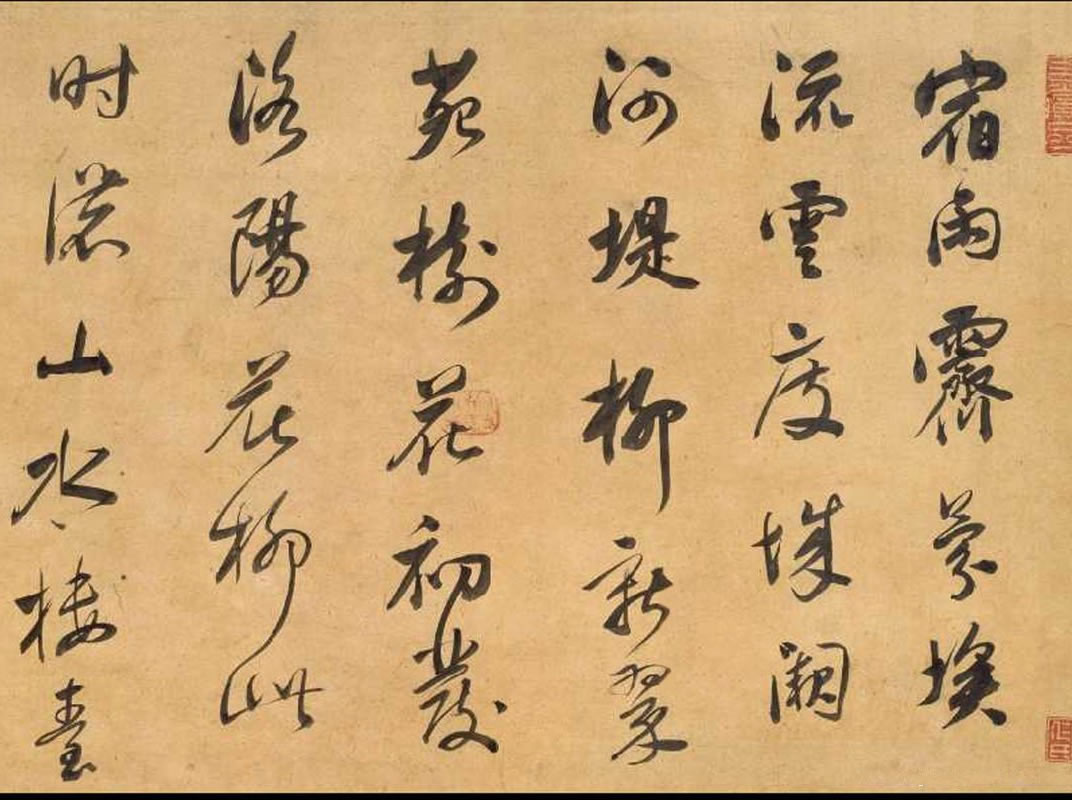 宿雨霽氛埃
流雲度城闕
河堤柳新翠
苑樹花初發
洛陽花柳此
时濃山水楼臺